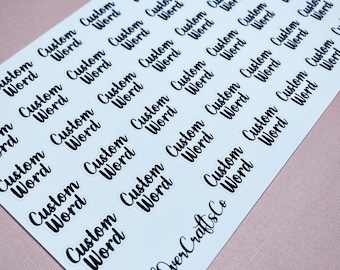 Custom
Word
Custom
Word
Custom
Word
Custom
Word
Custom
Word
Custom
Word
Custom
Word
Custom
Word
Custom
Word
Custom
Word
Custom
Word
Custom
Word
Custom
Word
Custom
Word
Custom
Word
Custom
Word
Custom
Word
Custom
Word
Custom
Word
Custom
Word
Custom
Word
Custom
Word
Custom
Word
Custom
Word
OverCraftsCo